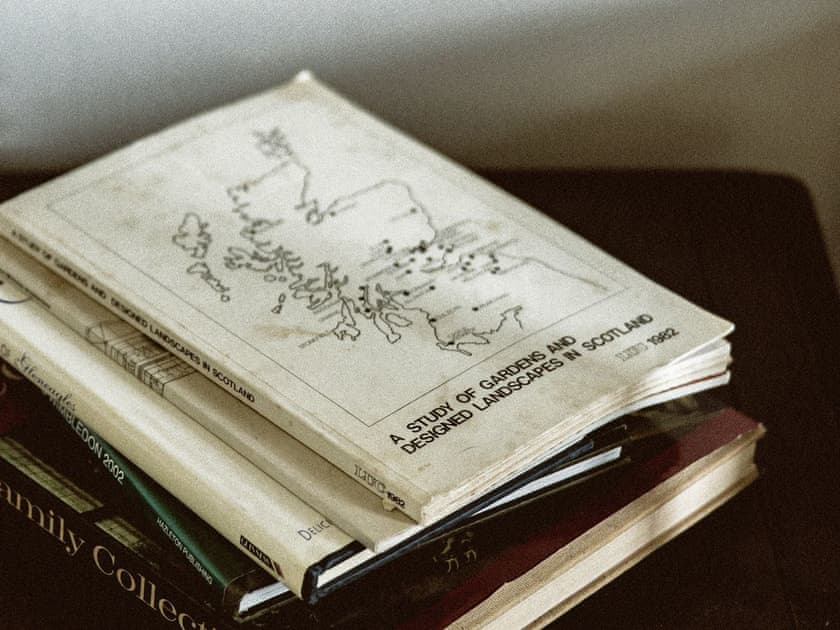 A STUDY OF GARDENS AND
DESIGNED LANDSCAPES IN SCOTLAND
LUC 1982
A STUDY OF GARDENS AND DESIGNED LANDSCAPES IN SCOTLAND
LUC 1982
Gleneagles
WIMBLEDON 2002
HAZLETON PUBLISHING
amily Collect